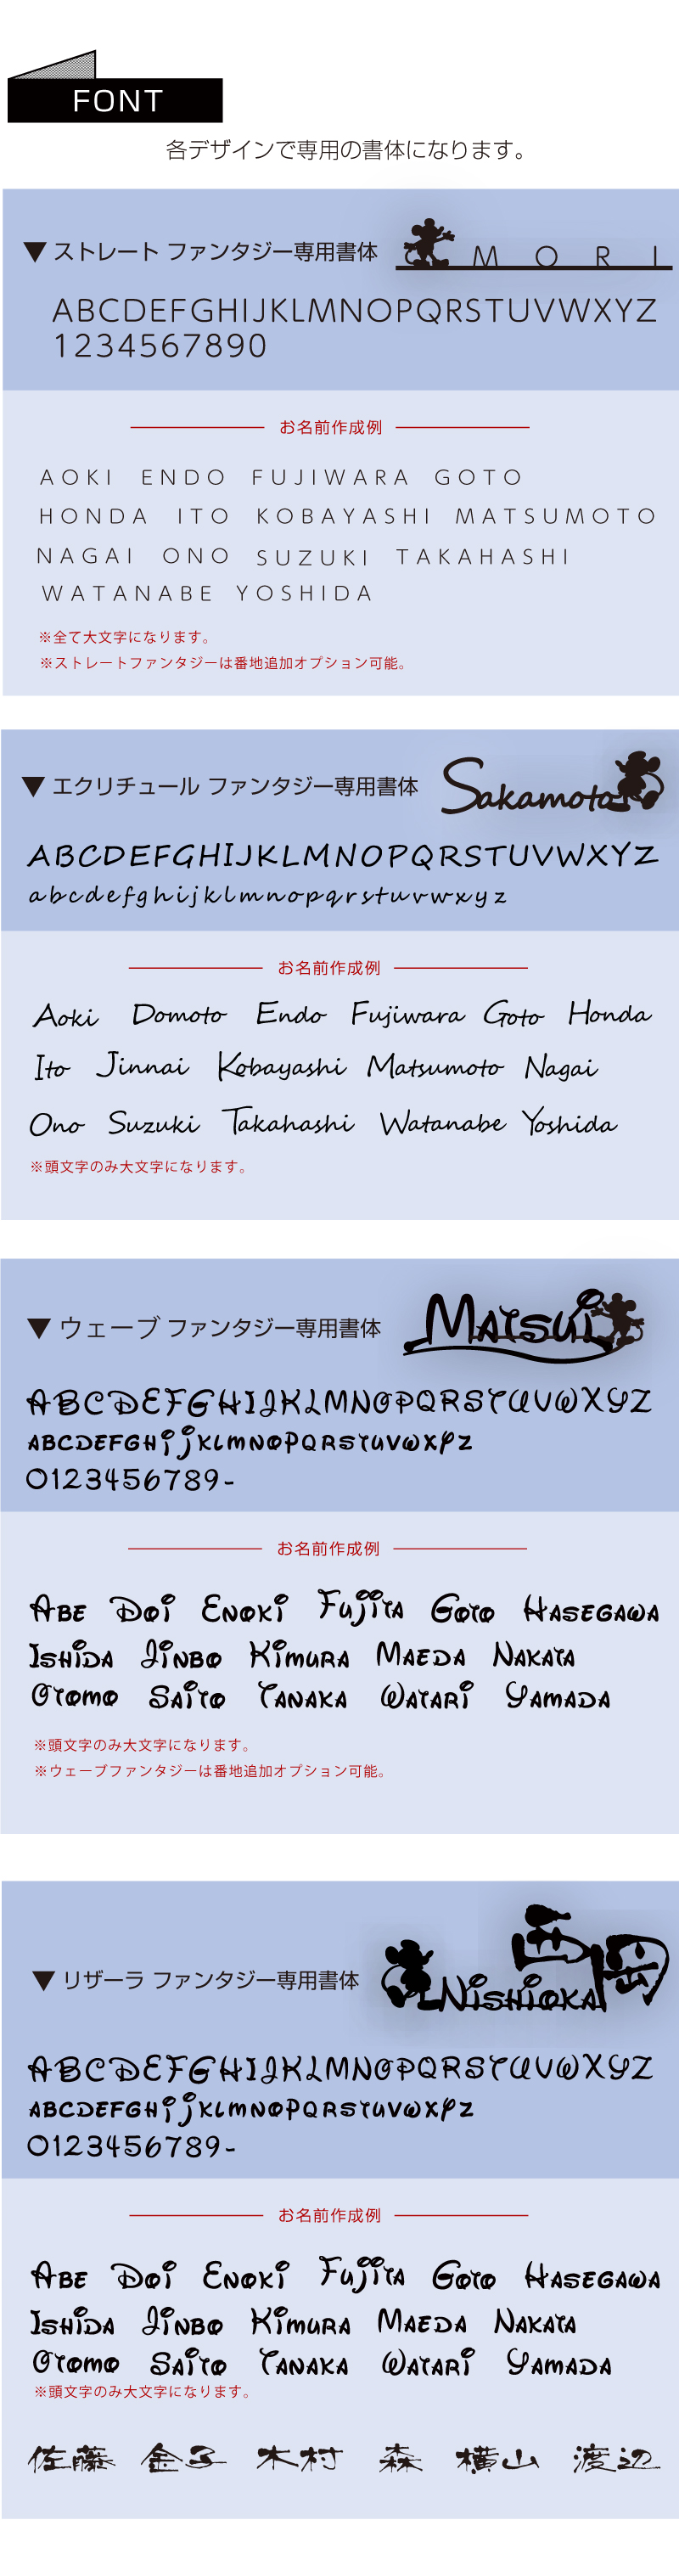 FONT
各デザインで専用の書体になります。
▼ストレート ファンタジー専用書体
MORI
ABCDEFGHIJKLMNOPQRSTUVWXYZ
1234567890
お名前作成例
AOKI ENDO FUJIWARA GOTO
HONDA ITO KOBAYASHI MATSUMOTO
NAGAI ONO SUZUKI TAKAHASHI
WATANABE YOSHIDA
※全て大文字になります。
※ストレートファンタジーは番地追加オプション可能。
▼エクリチュール ファンタジー専用書体
Sakamoto
ABCDEFGHIJKLMNOPQRSTUVWXYZ
abcdefghijklmnopqrstuvwxyz
お名前作成例
Aoki Domoto Endo Fujiwara Goto Honda
Ito Jinnai Kobayashi Matsumoto Nagai
Ono Suzuki Takahashi Watanabe Yoshida
※頭文字のみ大文字になります。
▼ウェーブ ファンタジー専用書体
Matsui
ABCDEFGHIJKLMNOPQRSTUVWXYZ
abcdefghijklmnopqrstuvwxyz
0123456789-
お名前作成例
Abe Doi Enoki Fujita Goto Hasegawa
Ishida Jinbo Kimura Maeda Nakata
Otomo Saito Tanaka Watari Yamada
※頭文字のみ大文字になります。
※ウェーブファンタジーは番地追加オプション可能。
▼リザーラ ファンタジー専用書体
西岡
Nishioka
ABCDEFGHIJKLMNOPQRSTUVWXYZ
abcdefghijklmnopqrstuvwxyz
0123456789-
お名前作成例
Abe Doi Enoki Fujita Goto Hasegawa
Ishida Jinbo Kimura Maeda Nakata
Otomo Saito Tanaka Watari Yamada
※頭文字のみ大文字になります。
佐藤 金子 木村 森 横山 渡辺